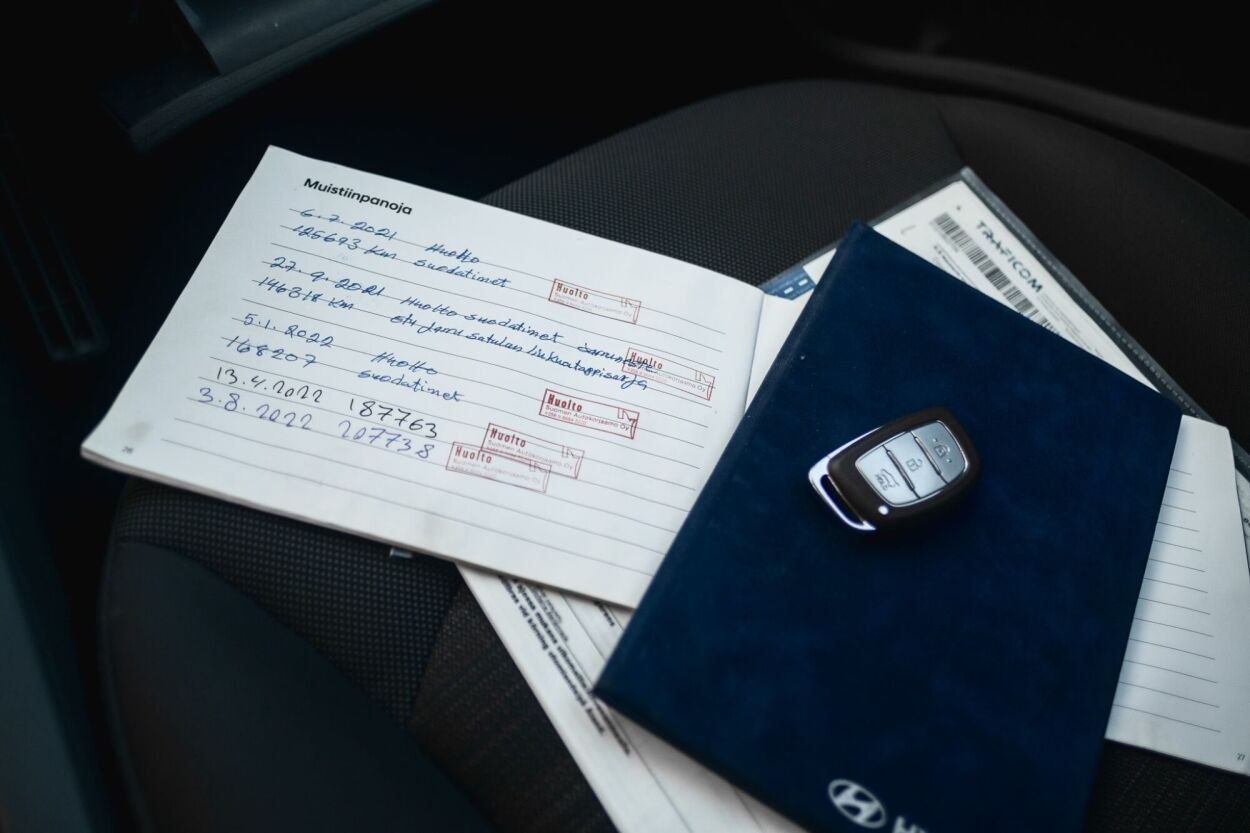 Muistiinpanoja
6.7.2021 Huolto
125693 Km suodatimet
Huolto
Suomen Autokorjaamo Oy
27.9.2021 Huolto suodatimet
146318 KM etu jarru satulan liukutappisarja
Huolto
Suomen Autokorjaamo Oy
5.1.2022 Huolto
168207 suodatimet
Huolto
Suomen Autokorjaamo Oy
13.4.2022 187763
Huolto
Suomen Autokorjaamo Oy
3.8.2022 207738
Huolto
Suomen Autokorjaamo Oy
26
TRAFICOM
HOLD
27